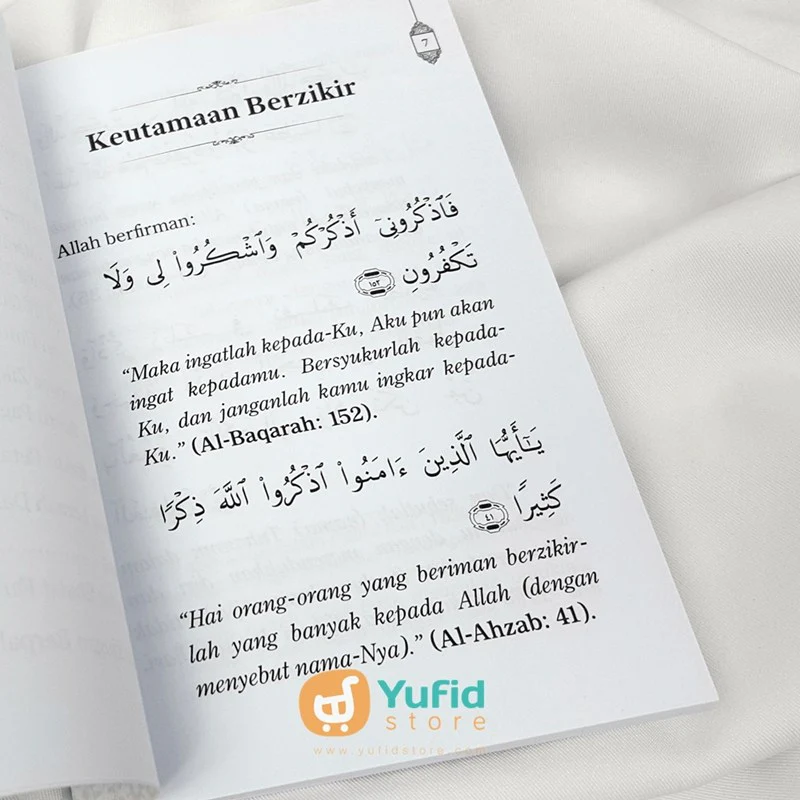 7
Keutamaan Berzikir
Allah berfirman:
فَٱذْكُرُونِىٓ أَذْكُرْكُمْ وَٱشْكُرُوا۟ لِى وَلَا
تَكْفُرُونِ ١٥٢
“Maka ingatlah kepada-Ku, Aku pun akan
ingat kepadamu. Bersyukurlah kepada-
Ku, dan janganlah kamu ingkar kepada-
Ku.” (Al-Baqarah: 152).
يَـٰٓأَيُّهَا ٱلَّذِينَ ءَامَنُوا۟ ٱذْكُرُوا۟ ٱللَّهَ ذِكْرًا
كَثِيرًا ٤١
“Hai orang-orang yang beriman berzikir-
lah yang banyak kepada Allah (dengan
menyebut nama-Nya).” (Al-Ahzab: 41).
Yufid
store
www.yufidstore.com